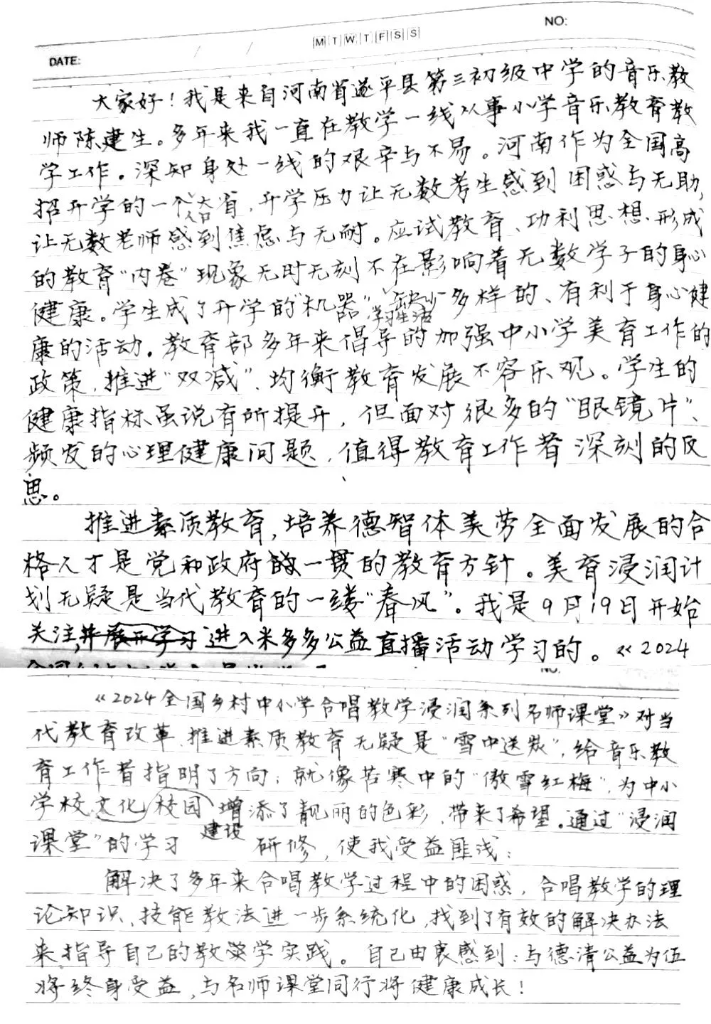 NO:
M T W T F S S
DATE: / /
大家好！我是来自河南省遂平县第三初级中学的音乐教
师陈建生。多年来我一直在教学一线从事小学音乐教育教
学工作。深知身处一线的艰辛与不易。河南作为全国高
招升学的一个人口大省，升学压力让无数考生感到困惑与无助，
让无数老师感到焦虑与无耐。应试教育、功利思想形成
的教育“内卷”现象无时无刻不在影响着无数学子的身心
健康。学生成了升学的“机器”，学校生活缺少多样的、有利于身心健
康的活动。教育部多年来倡导的加强中小学美育工作的
政策，推进“双减”、均衡教育发展不容乐观。学生的
健康指标虽说有所提升，但面对很多的“眼镜片”、
频发的心理健康问题，值得教育工作者深刻的反
思。
推进素质教育，培养德智体美劳全面发展的合
格人才是党和政府的一贯的教育方针。美育浸润计
划无疑是当代教育的一缕“春风”。我是9月19日开始
关注，并展开学习进入米多多公益直播活动学习的。《2024
《2024全国乡村中小学合唱教学浸润系列名师课堂》对当
代教育改革、推进素质教育无疑是“雪中送炭”，给音乐教
育工作者指明了方向；就像苦寒中的“傲雪红梅”，为中小
学校文化校园建设增添了靓丽的色彩，带来了希望。通过“浸润
课堂”的学习研修，使我受益匪浅：
解决了多年来合唱教学过程中的困惑，合唱教学的理
论知识、技能教法进一步系统化，找到了有效的解决办法
来指导自己的教学实践。自己由衷感到：与德清公益为伍
将终身受益，与名师课堂同行将健康成长！